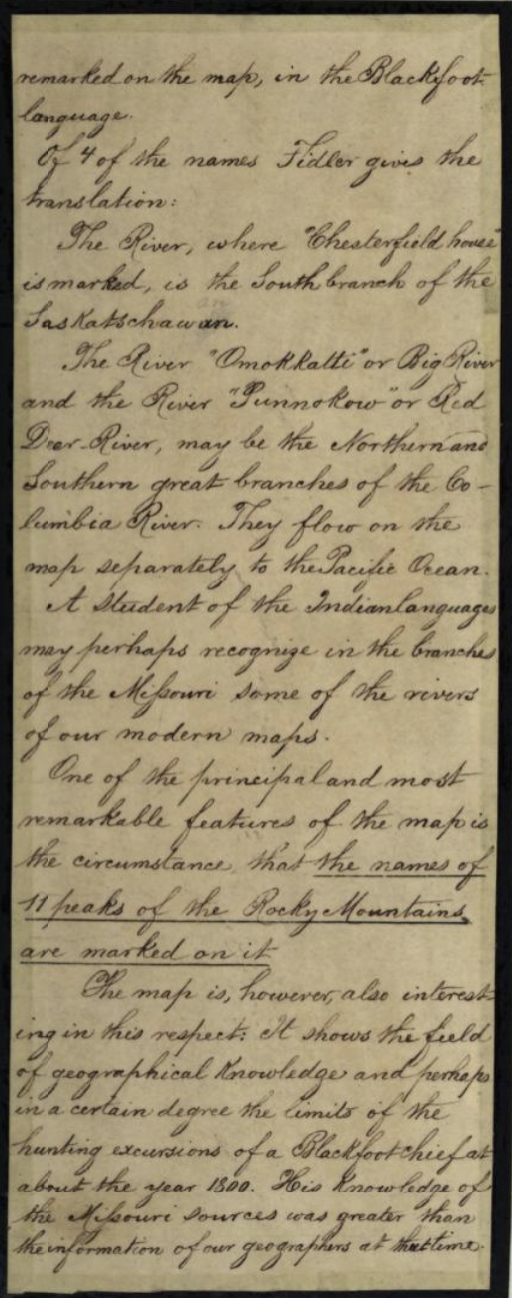 remarked on the map, in the Blackfoot
language.
Of 4 of the names Fidler gives the
translation:
The River, where "Chesterfield house"
is marked, is the South branch of the
Saskatschawan.
The River "Omokkatti" or Big River
and the River "Punnokow" or Red
Deer-River, may be the Northern and
Southern great branches of the Co-
lumbia River. They flow on the
map separately to the Pacific Ocean.
A Student of the Indian languages
may perhaps recognize in the branches
of the Missouri some of the rivers
of our modern maps.
One of the principal and most
remarkable features of the map is
the circumstance, that the names of
11 peaks of the Rocky Mountains,
are marked on it
The map is, however, also interest-
ing in this respect: It shows the field
of geographical Knowledge and perhaps
in a certain degree the limits of the
hunting excursions of a Blackfoot chief at
about the year 1800. His Knowledge of
the Missouri sources was greater than
the information of our geographers at that time.